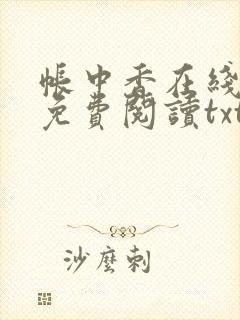 帳中香在綫
免費閱讀txt
沙塵刺